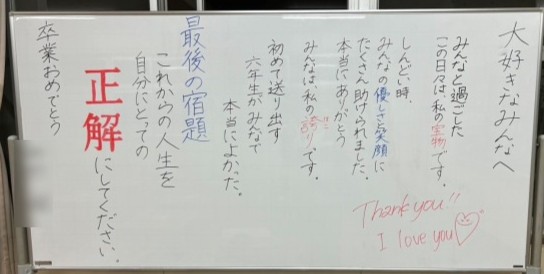 大好きなみんなへ
みんなと過ごした
この日々は、私の宝物です。
しんどい時、
みんなの優しさと笑顔に
たくさん助けられました。
本当にありがとう
みんなは、私の誇りです。
初めて送り出す
六年生がみんなで
本当によかった。
最後の宿題
これからの人生を
自分にとっての
正解にしてください。
卒業おめでとう
Thank you!!
I love you